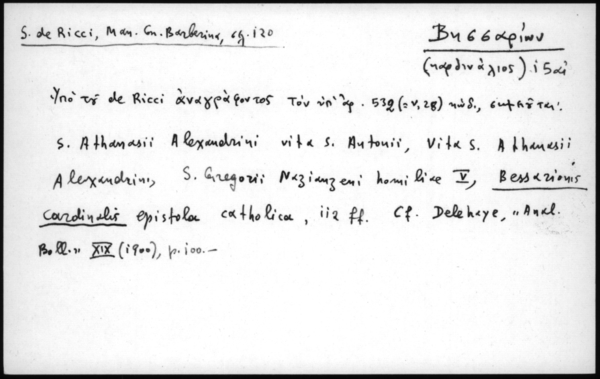 S. de Ricci, Man. Gr. Barberina, σζ. 120
Βησσαρίων
(καρδινάλιος) 15αἰ
Ὑπὸ τοῦ de Ricci ἀναγράφοντος τὸν ὑπ' ἀρ. 532 (= V, 28) κώδ., σημειοῦται:
S. Athanasii Alexandrini vita S. Antonii, Vita S. Athanasii
Alexandrini, S. Gregorii Nazianzeni homiliae V, Bessarionis
Cardinalis epistola catholica, 112 ff. Cf. Delehaye, „Anal.
Boll.„ XIX (1900), p. 100.—